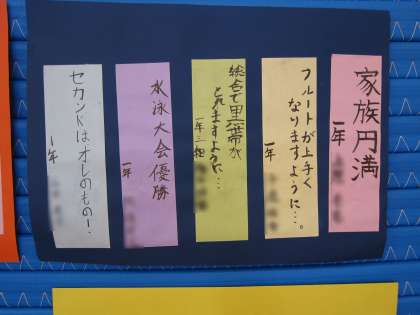 家族円満
一年
フルートが上手く
なりますように…。
一年
総合で黒帯が
とれますように…
一年二組
水泳大会優勝
一年
セカンドはオレのもの!.
1年